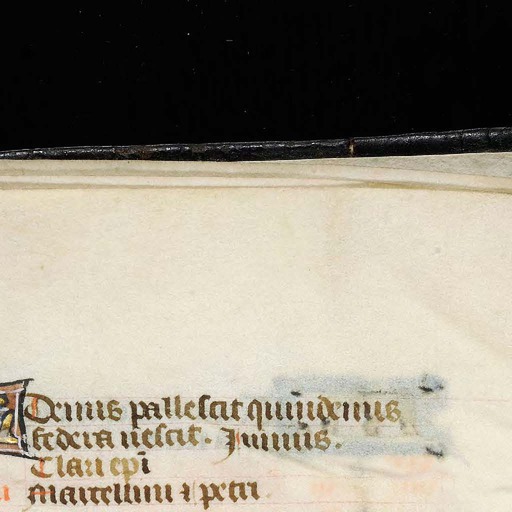 Denus pallescit quindenus
federa nescit. Iunius.
Clari epi
Marcellini ⁊ petri